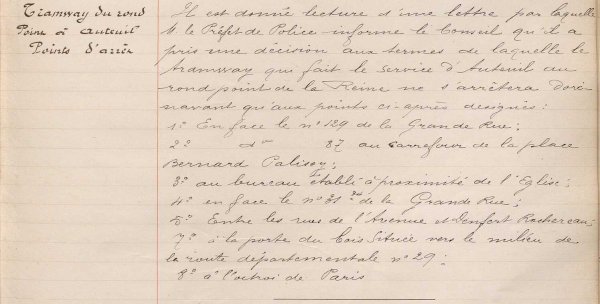 Tramway du rond
Point à Auteuil
Points d'arrêt
Il est donné lecture d'une lettre par laquelle
M. le Préfet de Police informe le Conseil qu'il a
pris une décision aux termes de laquelle le
tramway qui fait le service d'Auteuil au
rond point de la Reine ne s'arrêtera doré-
navant qu'aux points ci-après désignés:
1° En face le n° 129 de la Grande Rue;
2° d° 87 au carrefour de la place
Bernard Palissy;
3° au bureau établi à proximité de l'Eglise;
4° en face le n° 31 de la Grande Rue;
6° Entre les rues de l'Avenue et Denfert Rochereau
7° à la porte du bois située vers le milieu de
la route départementale n° 29;
8° à l'octroi de Paris